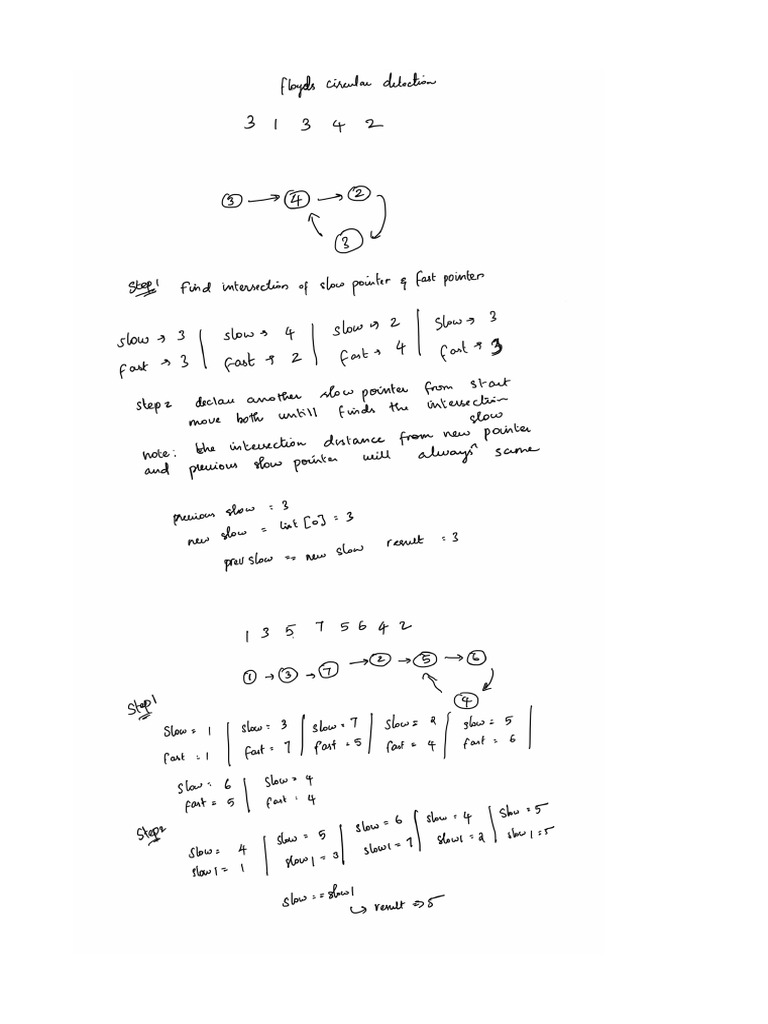 floyds circular detection
3 1 3 4 2
3 → 4 → 2
3
Step1 Find intersection of slow pointer & fast pointer
slow → 3 | slow → 4 | slow → 2 | slow → 3
fast → 3 | fast → 2 | fast → 4 | fast → 3
step2 declare another slow pointer from start
move both untill finds the intersection
note: the intersection distance from new slow pointer
and previous slow pointer will always ^ same
previous slow = 3
new slow = list [0] = 3
prev slow == new slow result = 3
1 3 5 7 5 6 4 2
1 → 3 → 7 → 2 → 5 → 6
4
Step1
Slow = 1 | slow = 3 | slow = 7 | slow = 2 | slow = 5 |
fast = 1 | fast = 7 | fast = 5 | fast = 4 | fast = 6 |
slow = 6 | slow = 4
fast = 5 | fast = 4
Step2
slow = 4 | slow = 5 | slow = 6 | slow = 4 | slow = 5
slow1 = 1 | slow1 = 3 | slow1 = 7 | slow1 = 2 | slow1 = 5
slow == slow1
↳ result => 5